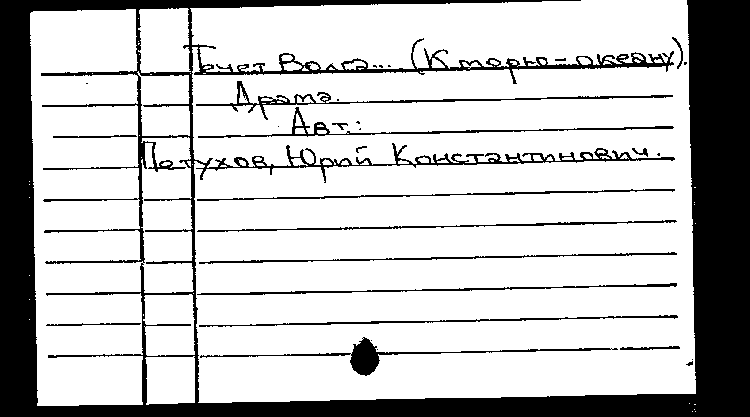 Течет Волга... (К морю-океану).
Драма.
Авт.:
Петухов, Юрий Константинович.